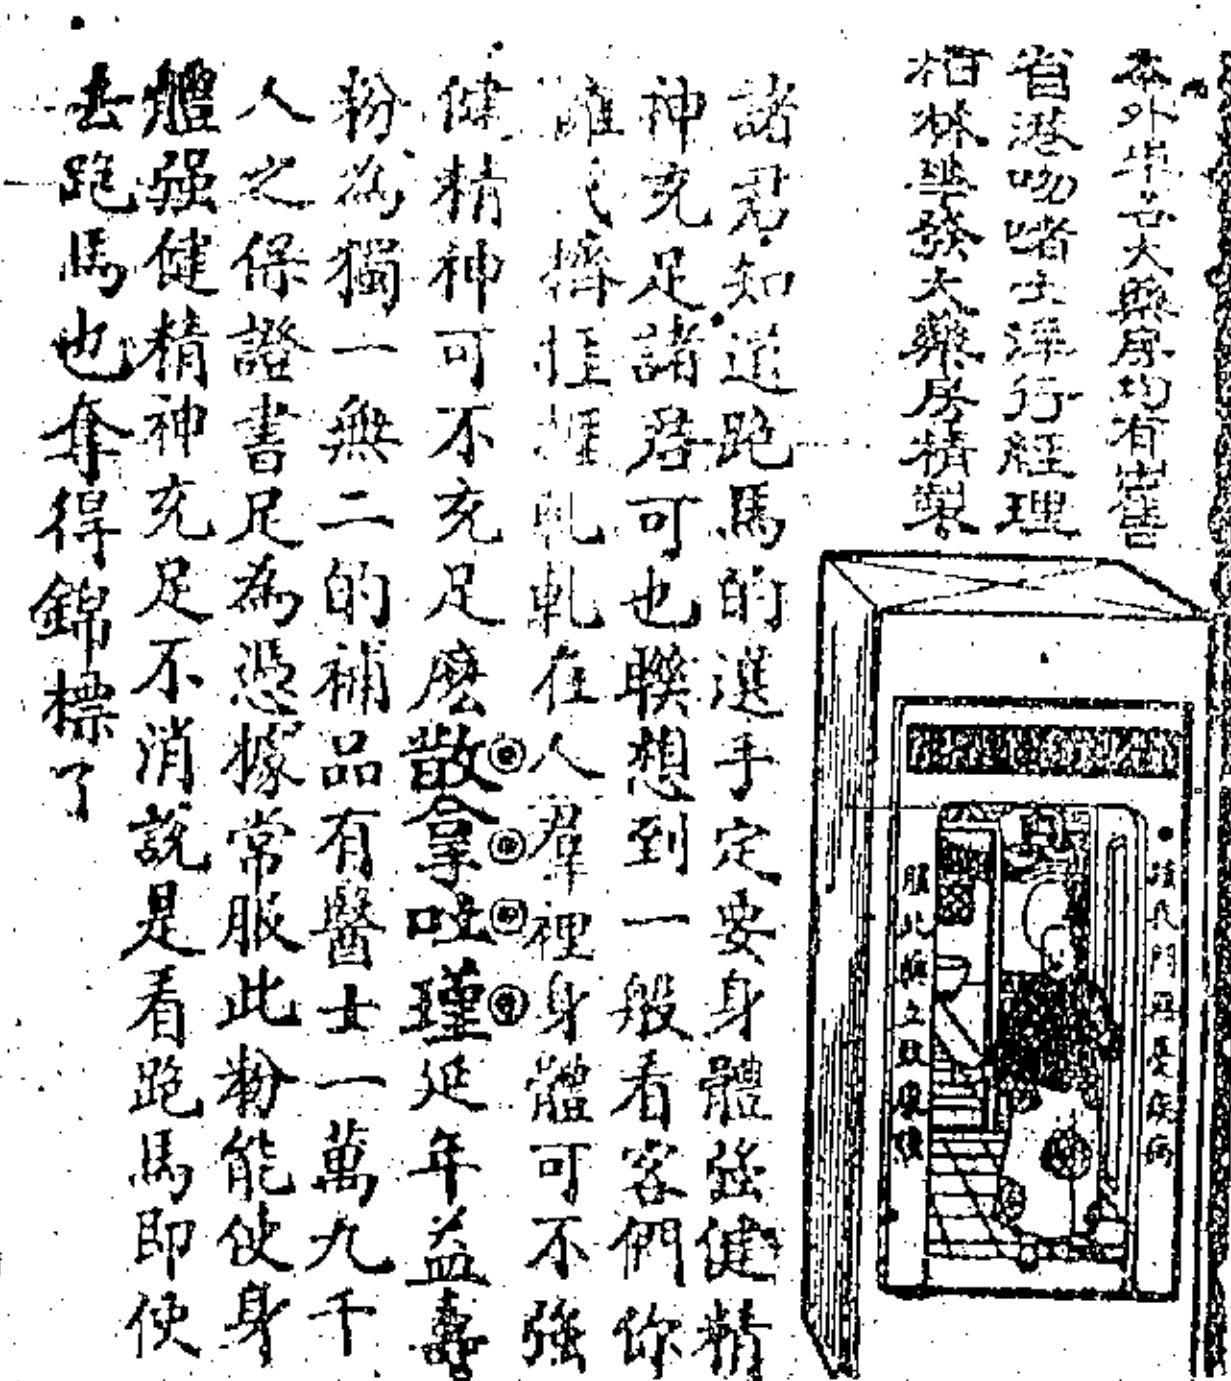 本外埠各大藥房均有售
省港吻啫士洋行經理
柏林華發大藥房精製
諸君知道跑馬的選手定要身體強健精
神充足諸君可也聯想到一般看客們你
擠擠軋軋在人羣裡身體可不強
健精神可不充足麽散拿吐瑾延年益壽
粉為獨一無二的補品有醫士一萬九千
人之保證書足為憑據常服此粉能使身
體强健精神充足不消說是看跑馬即使
去跑馬也奪得錦標了
服此粉立致康健